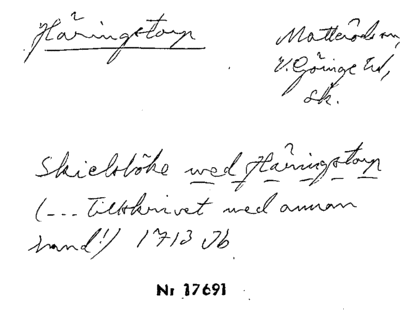 Häringstorp
Matteröds sn,
V. Göinge hd,
Sk.
Skielsböke wed Häringstorp
(--- tillskrivet med annan
hand!) 1713 Jb
Nr 17691